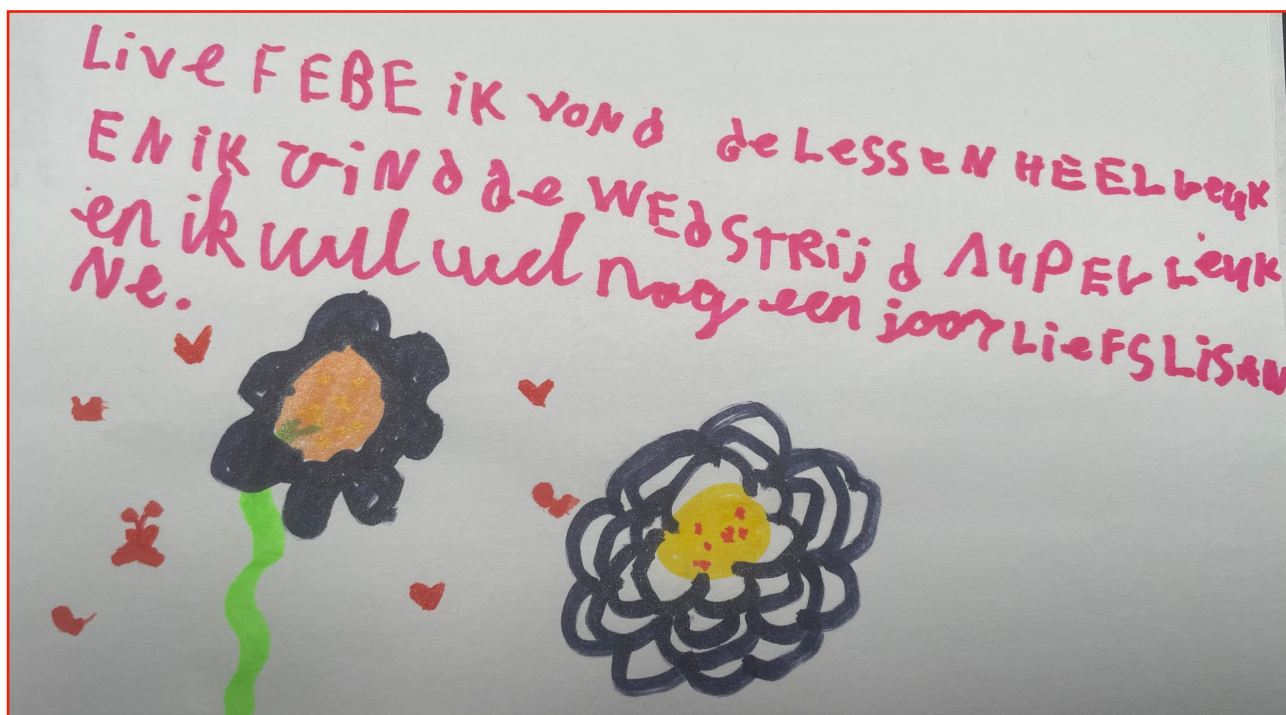 Live FEBE iK voNd de LeSSeN HEEL Leuk
EN iK viNd de WEdSTRijd AupEL Leuk
en ik wil wel nog een joor LieFS LiSAN
Ne.